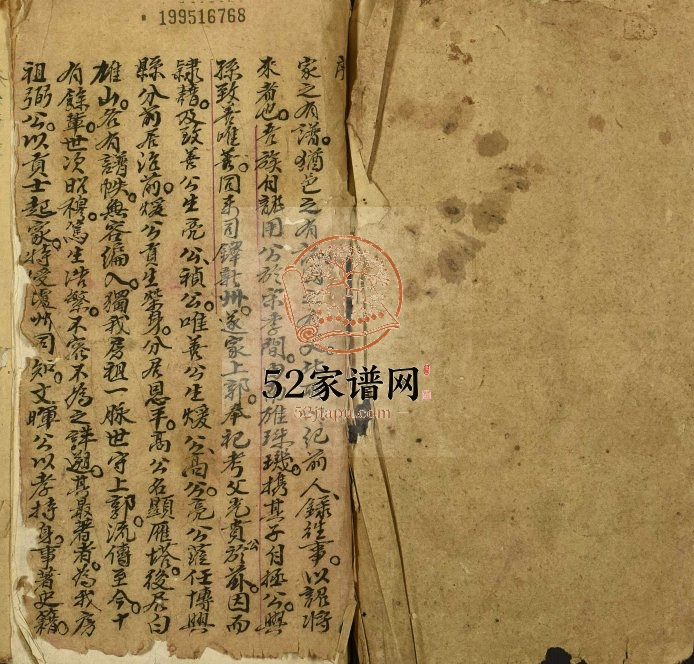 199516768
序
家之有譜猶邑之有 紀前人錄往事以詔將
來者也吾族自 用公於宋季間 雄珠璣携其子自極公與
孫致善唯善同来 新州遂家上郭奉祀考父 貴於 公因而
隸籍及致善公生亮公禎公唯善公生煖公高公亮公蔭任博興
縣分前居 前煖公貢生榮身分居恩平高公名顯雁塔後居白
雄山各有譜帙無容編入獨我房祖一脉世守上郭流傳至今十
有餘輩世次昭穆篤生浩繁不容不為之詳 其最著者為我房
祖弼公以貢士起家特受瓊州司知文暉公以孝持身事著史籍
52家谱网
52jiapu.com